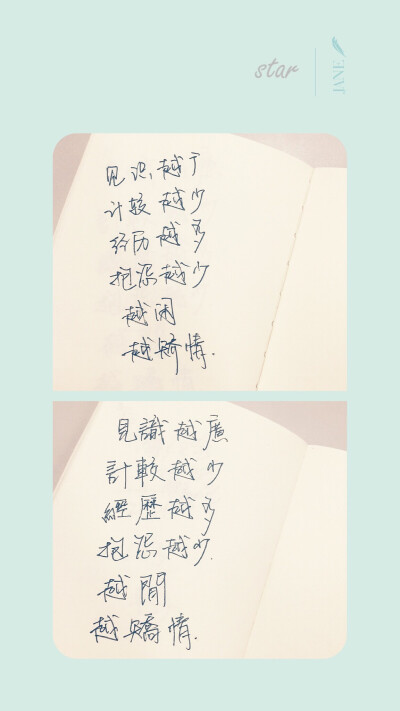 star
JANE
见识越广
计较越少
经历越多
抱怨越少
越闲
越矫情.
見識越廣
計較越少
經歷越多
抱怨越少.
越閒
越矯情.